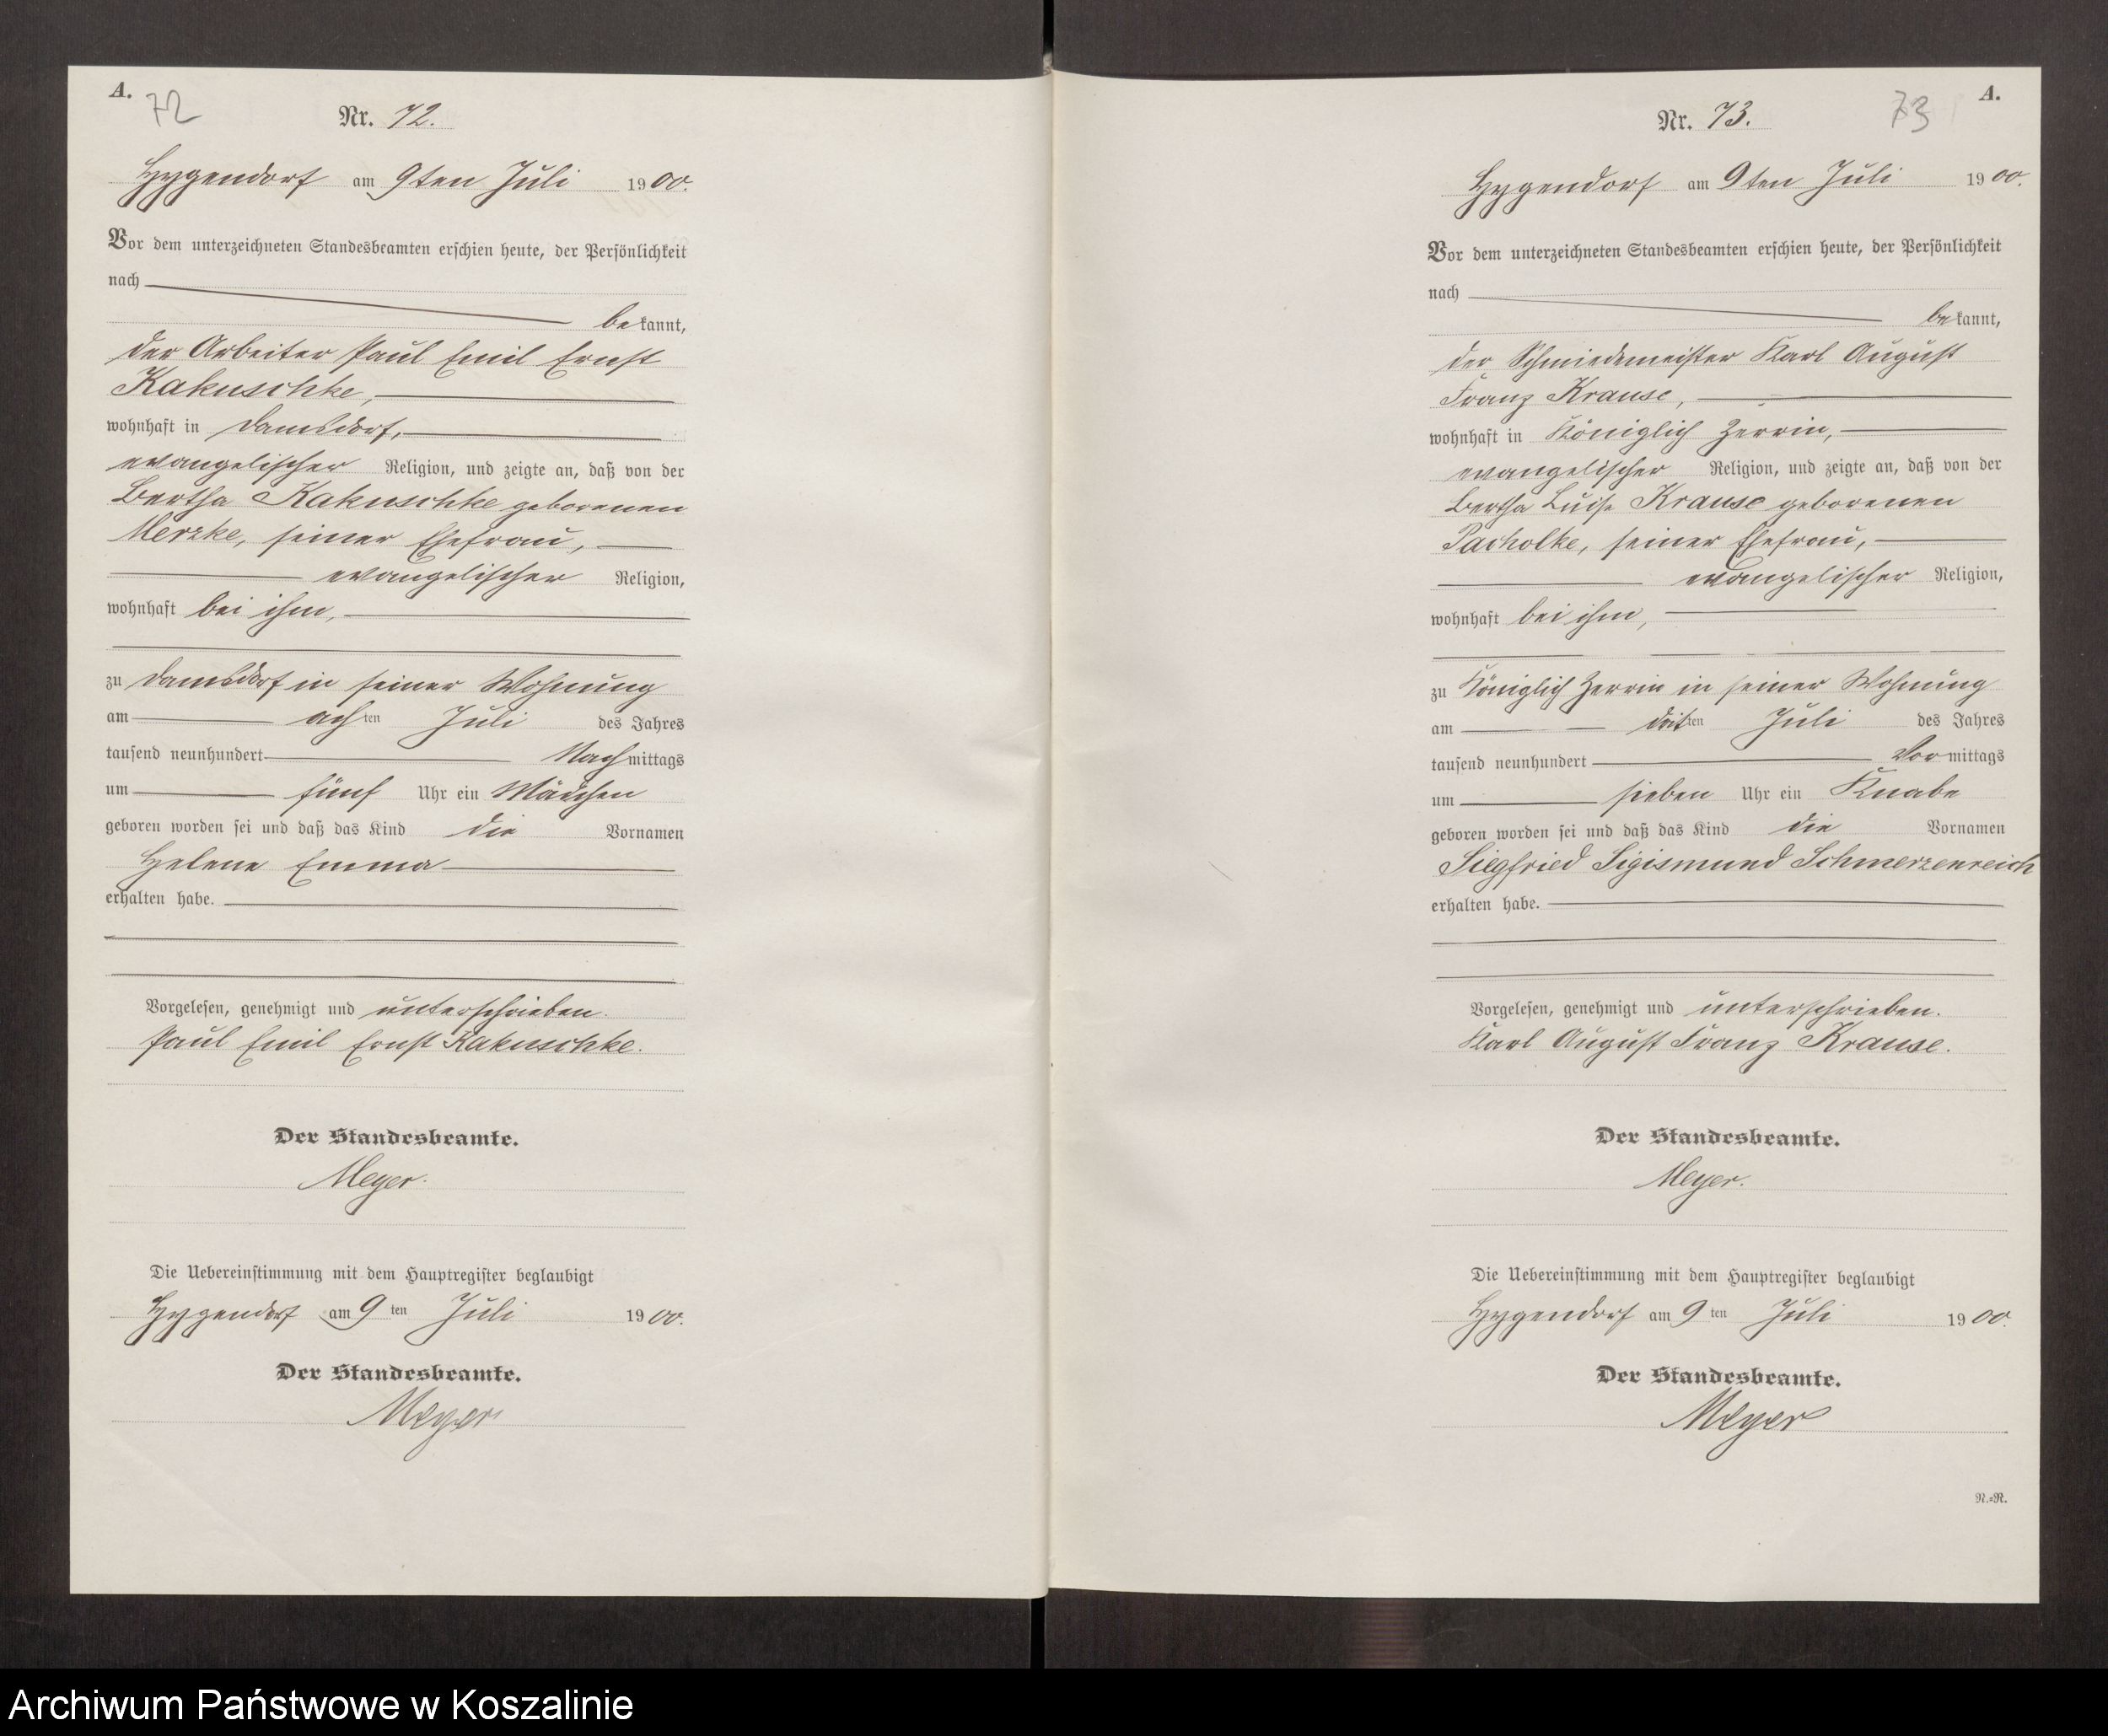 A.
72
Nr. 72.
Hygendorf am 9ten Juli 1900.
Vor dem unterzeichneten Standesbeamten erschien heute, der Persönlichkeit
nach
bekannt,
der Arbeiter Paul Emil Ernst
Kakuschke,
wohnhaft in Damsdorf,
evangelischer Religion, und zeigte an, daß von der
Bertha Kakuschke geborenen
Merzke, seiner Ehefrau,
evangelischer Religion,
wohnhaft bei ihm,
zu Damsdorf in seiner Wohnung
am achten Juli des Jahres
tausend neunhundert Nachmittags
um fünf Uhr ein Mädchen
geboren worden sei und daß das Kind die Vornamen
Helene Emma
erhalten habe.
Vorgelesen, genehmigt und unterschrieben.
Paul Emil Ernst Kakuschke.
Der Standesbeamte.
Meyer.
Die Uebereinstimmung mit dem Hauptregister beglaubigt
Hygendorf am 9ten Juli 1900.
Der Standesbeamte.
Meyer
A.
73
Nr. 73.
Hygendorf am 9ten Juli 1900.
Vor dem unterzeichneten Standesbeamten erschien heute, der Persönlichkeit
nach
bekannt,
der Schmiedemeister Karl August
Franz Krause,
wohnhaft in Königlich Zerrin,
evangelischer Religion, und zeigte an, daß von der
Bertha Luise Krause geborenen
Pacholke, seiner Ehefrau,
evangelischer Religion,
wohnhaft bei ihm,
zu Königlich Zerrin in seiner Wohnung
am dritten Juli des Jahres
tausend neunhundert Vormittags
um sieben Uhr ein Knabe
geboren worden sei und daß das Kind die Vornamen
Siegfried Sigismund Schmerzenreich
erhalten habe.
Vorgelesen, genehmigt und unterschrieben.
Karl August Franz Krause.
Der Standesbeamte.
Meyer.
Die Uebereinstimmung mit dem Hauptregister beglaubigt
Hygendorf am 9ten Juli 1900.
Der Standesbeamte.
Meyer
N.=R.
Archiwum Państwowe w Koszalinie